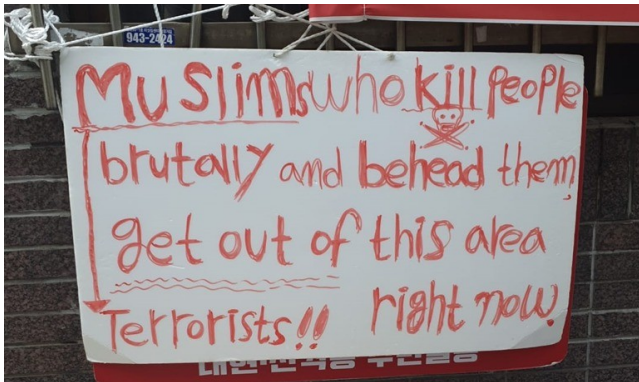 943-2424
Muslims who kill people
brutally and behead them,
get out of this area
right now.
Terrorists!!